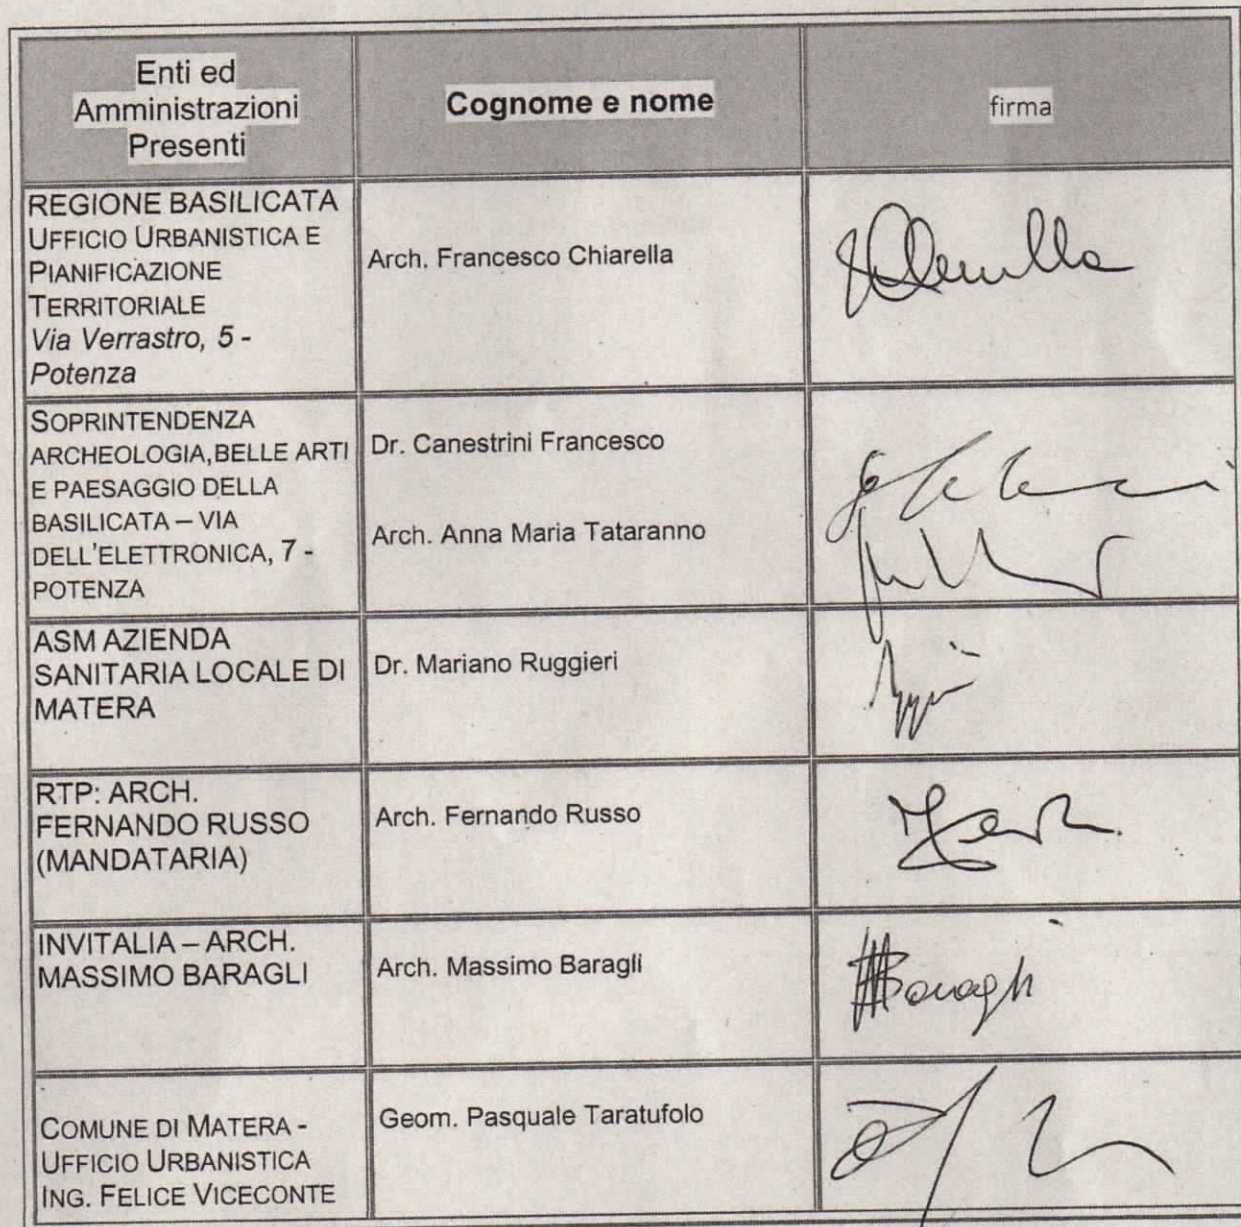 Enti ed
Amministrazioni
Presenti
Cognome e nome
firma
REGIONE BASILICATA
UFFICIO URBANISTICA E
PIANIFICAZIONE
TERRITORIALE
Via Verrastro, 5 -
Potenza
Arch. Francesco Chiarella
SOPRINTENDENZA
ARCHEOLOGIA,BELLE ARTI
E PAESAGGIO DELLA
BASILICATA – VIA
DELL'ELETTRONICA, 7 -
POTENZA
Dr. Canestrini Francesco
Arch. Anna Maria Tataranno
ASM AZIENDA
SANITARIA LOCALE DI
MATERA
Dr. Mariano Ruggieri
RTP: ARCH.
FERNANDO RUSSO
(MANDATARIA)
Arch. Fernando Russo
INVITALIA – ARCH.
MASSIMO BARAGLI
Arch. Massimo Baragli
COMUNE DI MATERA -
UFFICIO URBANISTICA
ING. FELICE VICECONTE
Geom. Pasquale Taratufolo